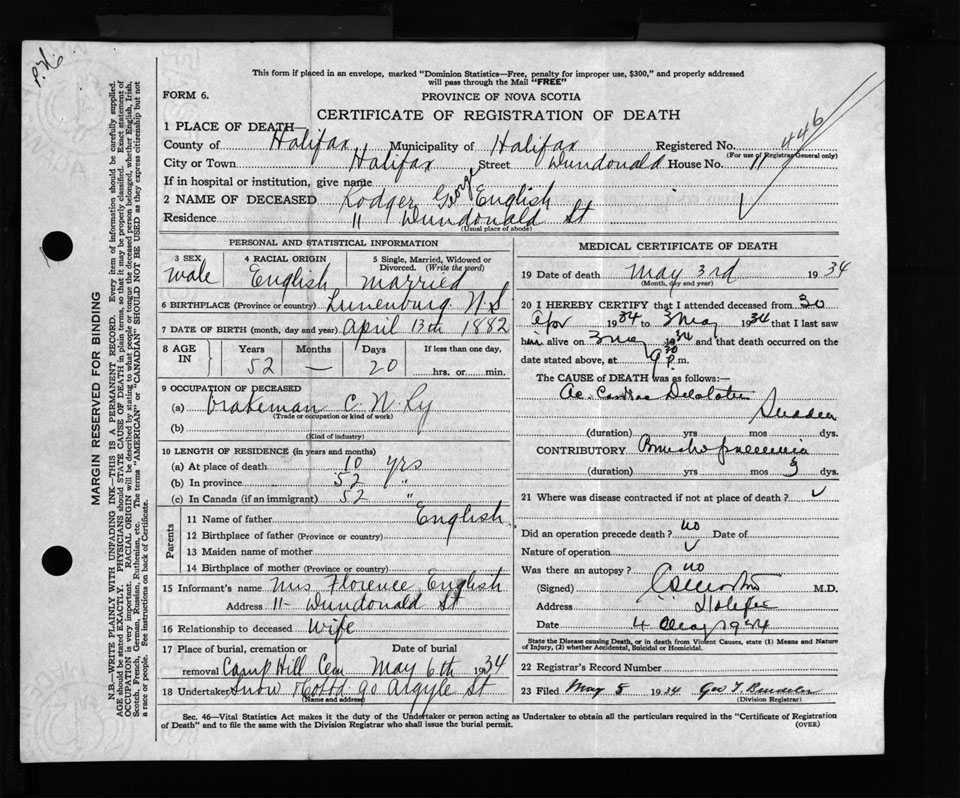 P.H.
This form if placed in an envelope, marked "Dominion Statistics—Free, penalty for improper use, $300," and properly addressed
will pass through the Mail "FREE"
FORM 6.
PROVINCE OF NOVA SCOTIA
CERTIFICATE OF REGISTRATION OF DEATH
446
1 PLACE OF DEATH—
County of Halifax Municipality of Halifax Registered No.
(For use of Registrar General only)
City or Town Halifax Street Dundonald House No. 11
If in hospital or institution, give name
2 NAME OF DECEASED Rodger George English
Residence 11 Dundonald St
(Usual place of abode)
PERSONAL AND STATISTICAL INFORMATION
3 SEX 4 RACIAL ORIGIN 5 Single, Married, Widowed or
Divorced. (Write the word)
male English married
6 BIRTHPLACE (Province or country) Lunenburg N.S
7 DATE OF BIRTH (month, day and year) April 13th 1882
8 AGE IN Years Months Days If less than one day,
52 — 20 hrs. or min.
9 OCCUPATION OF DECEASED
(a) brakeman C. N. Ry
(Trade or occupation or kind of work)
(b)
(Kind of industry)
10 LENGTH OF RESIDENCE (in years and months)
(a) At place of death 10 yrs
(b) In province 52 "
(c) In Canada (if an immigrant) 52 "
Parents
11 Name of father English
12 Birthplace of father (Province or country)
13 Maiden name of mother
14 Birthplace of mother (Province or country)
15 Informant's name Mrs Florence English
Address 11 Dundonald St
16 Relationship to deceased Wife
17 Place of burial, cremation or
removal Camp Hill Cem May 6th 1934
18 Undertaker Snow & Co Ltd 90 Argyle St
(Name and address)
MEDICAL CERTIFICATE OF DEATH
19 Date of death May 3rd 1934
(Month, day and year)
20 I HEREBY CERTIFY that I attended deceased from 30
Apr 1934 to 3 May 1934 that I last saw
him alive on 3 May 1934 and that death occurred on the
date stated above, at 9 30 P.m.
The CAUSE OF DEATH was as follows:—
Ac. Cardiac Dilatation
Sudden
(duration) yrs mos dys.
CONTRIBUTORY Broncho pneumonia
(duration) yrs mos 3 dys.
21 Where was disease contracted if not at place of death?
Did an operation precede death? no Date of
Nature of operation
Was there an autopsy? no
(Signed) M.D.
Address Halifax
Date 4 May 1934
State the Disease causing Death, or in death from Violent Causes, state (1) Means and Nature
of Injury, (2) whether Accidental, Suicidal or Homicidal.
22 Registrar's Record Number
23 Filed May 5 1934 Geo T.
(Division Registrar)
Sec. 46—Vital Statistics Act makes it the duty of the Undertaker or person acting as Undertaker to obtain all the particulars required in the "Certificate of Registration
of Death" and to file the same with the Division Registrar who shall issue the burial permit. (OVER)
MARGIN RESERVED FOR BINDING
N.B.—WRITE PLAINLY WITH UNFADING INK—THIS IS A PERMANENT RECORD. Every item of information should be carefully supplied.
AGE should be stated EXACTLY. PHYSICIANS should STATE CAUSE OF DEATH in plain terms, so that it may be properly classified. Exact statement of
OCCUPATION is very important. RACIAL ORIGIN will be described by stating to what people or tongue the deceased person belonged, whether English, Irish,
Scotch, French, German, Russian, Ruthenian, etc. The terms "AMERICAN" or "CANADIAN" SHOULD NOT BE USED as they express citizenship but not
a race or people. See instructions on back of Certificate.